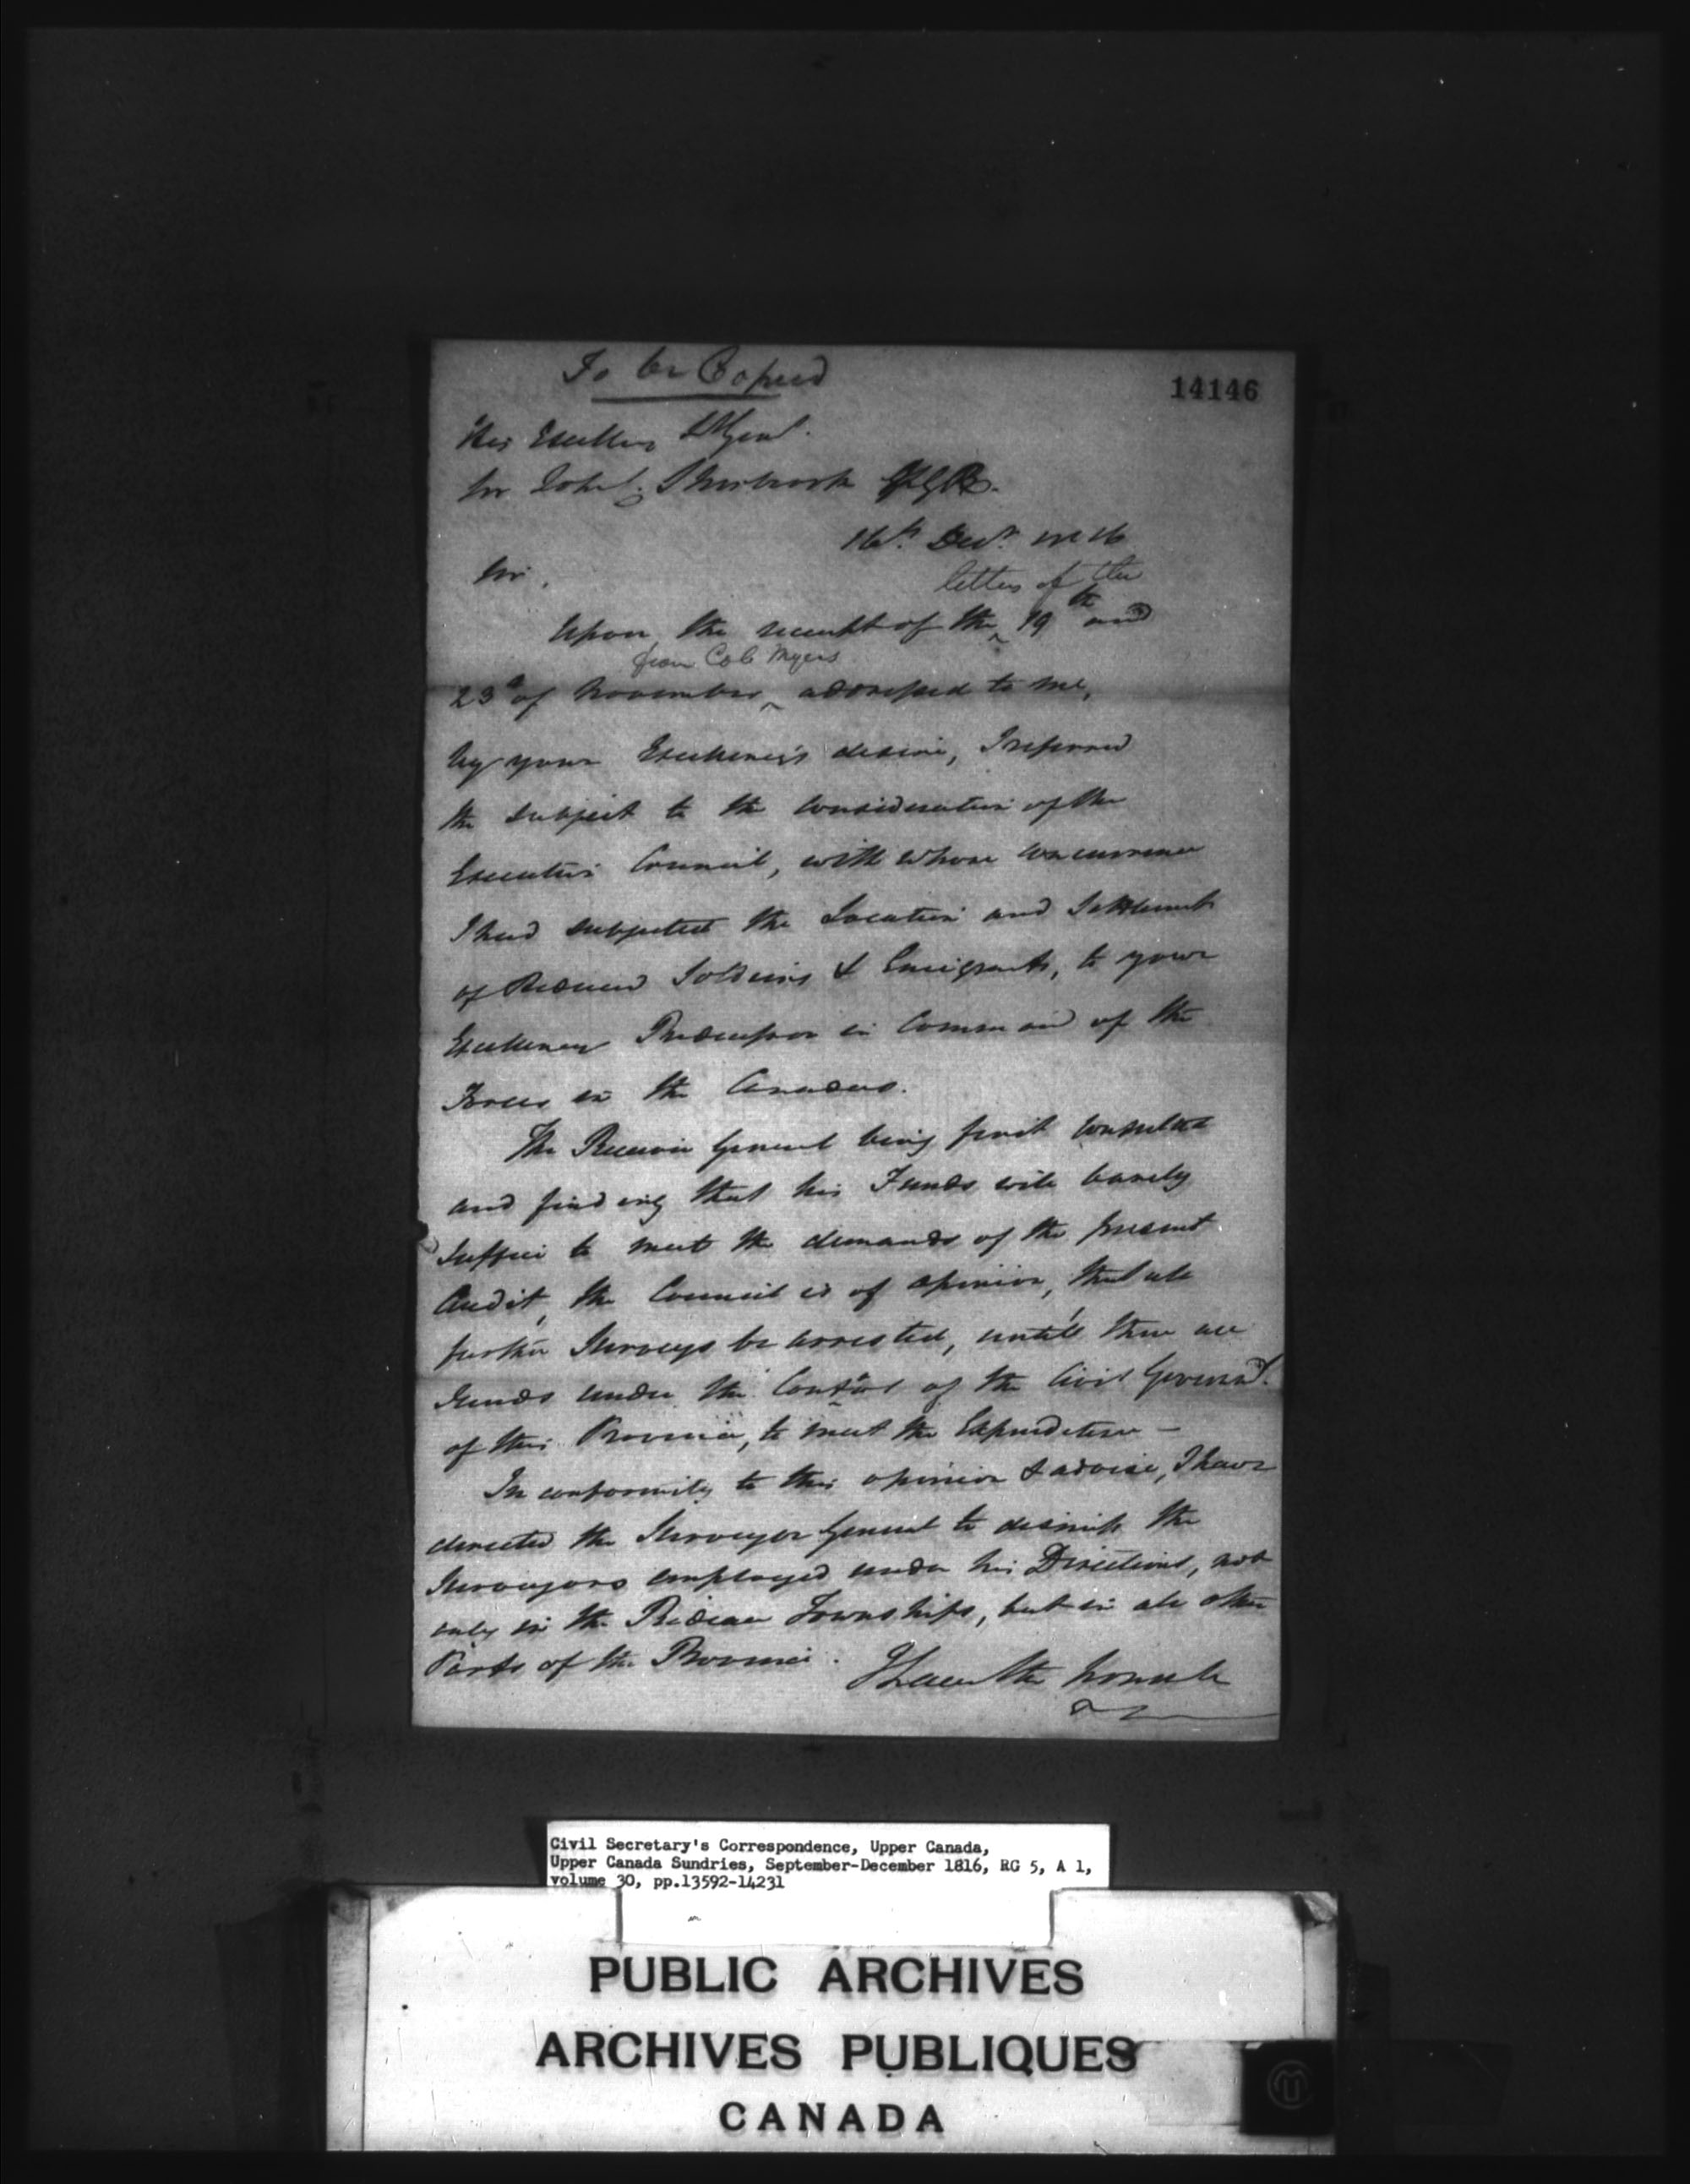 To be Copied
14146
His Excellency Lt Genl.
Sir John C. Sherbrook GCB.
16th. Decr. 1816
Sir,
letters of the
Upon the receipt of the 19th and
from Col. Myers
23d of November addressed to me,
by your Excellency's desire, I referred
the subject to the consideration of the
Executive Council, with whose concurrence
I had subjected the Location and Settlement
of Reduced Soldiers & Emigrants, to your
Excellency Predecessor in Command of the
Forces in the Canadas.
The Receiver General being first consulted
and finding that his Funds will barely
suffice to meet the demands of the present
Audit, the Council is of opinion, that all
further Surveys be arrested, untill there are
Funds under the Control of the Civil Governmt.
of this Province, to meet the Expenditure —
In conformity to this opinion & advice, I have
directed the Surveyor General to dismiss the
Surveyors employed under his Directions, not
only in the Rideau Townships, but in all other
Parts of the Province.
I have the honor to be
Civil Secretary's Correspondence, Upper Canada,
Upper Canada Sundries, September-December 1816, RG 5, A 1,
volume 30, pp.13592-14231
PUBLIC ARCHIVES
ARCHIVES PUBLIQUES
CANADA